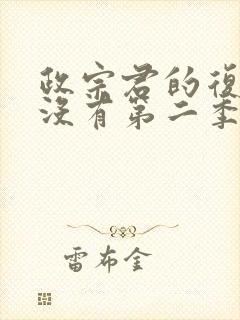 政宗君的復
沒有第二季
雷布金